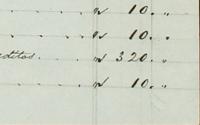 " 10. "
" 10. "
editos. . . . " 320. "
" 10. "